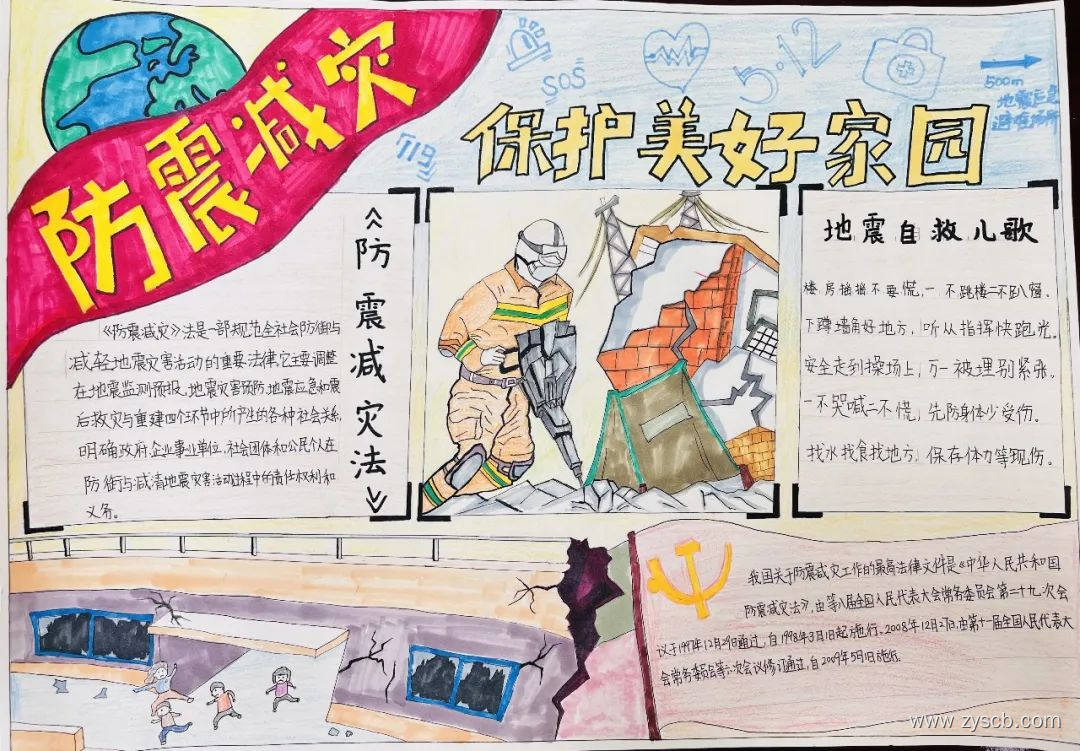 防震减灾
SOS
5·12
500m
地震应急
避难场所
119
保护美好家园
《防震减灾法》
《防震减灾》法是一部规范全社会防御与
减轻地震灾害活动的重要法律,它主要调整
在地震监测预报、地震灾害预防、地震应急和震
后救灾与重建四个环节中所产生的各种社会关系,
明确政府、企业事业单位、社会团体和公民个人在
防街与减清地震灾害活动过程中的责任权利和
义务。
地震自救儿歌
楼房摇摇不要慌,一不跳楼二不趴窗。
下蹲墙角好地方,听从指挥快跑光。
安全走到操场上,万一被埋别紧张。
一不哭喊二不慌,先防身体少受伤。
找水找食找地方,保存体力等现伤。
我国关于防震减灾工作的最高法律文件是《中华人民共和国
防震减灾法》,由第八届全国人民代表大会常务委员会第二十九次会
议于1997年12月29日通过,自1998年3月1日起施行,2008年12月27日,由第十一届全国人民代表大
会常务委员会第六次会议修订通过,自2009年5月1日施行。
www.zyscb.com